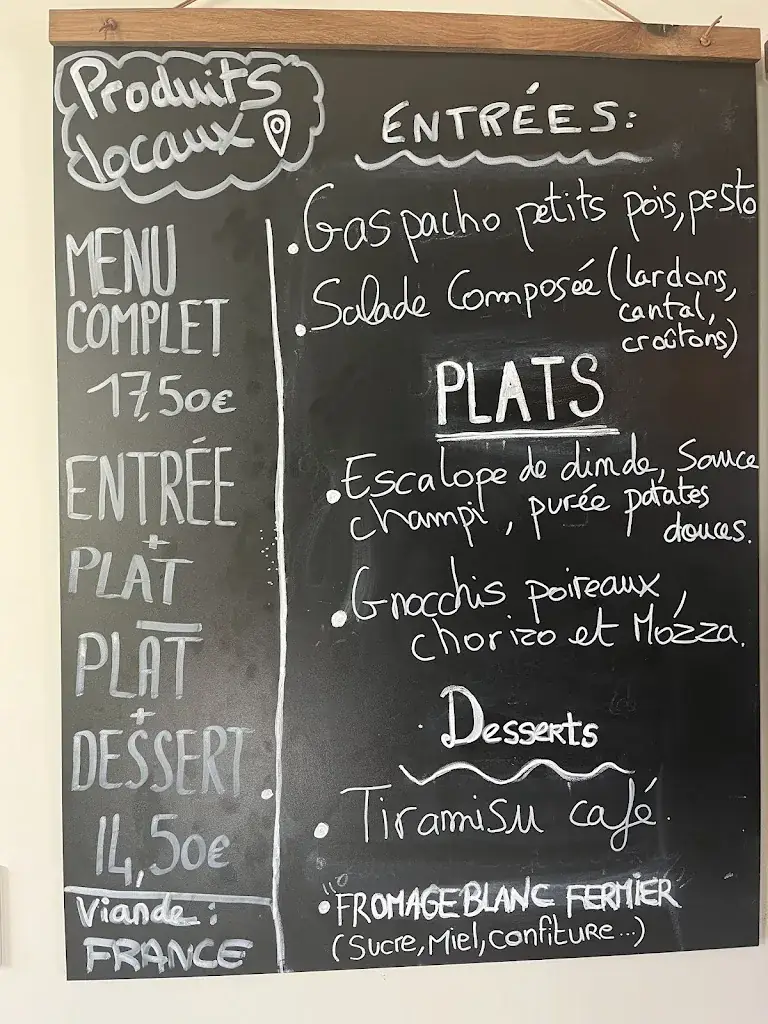 Produits
locaux
MENU
COMPLET
17,50€
ENTRÉE
+
PLAT
—
PLAT
+
DESSERT
14,50€
Viande :
FRANCE
ENTRÉES:
• Gaspacho petits pois, pesto
• Salade Composée (lardons,
cantal,
croûtons)
PLATS
• Escalope de dinde, Sauce
champi, purée patates
douces.
• Gnocchis poireaux,
chorizo et Mozza.
Desserts
• Tiramisu café.
• FROMAGE BLANC FERMIER
(Sucre, Miel, confiture...)